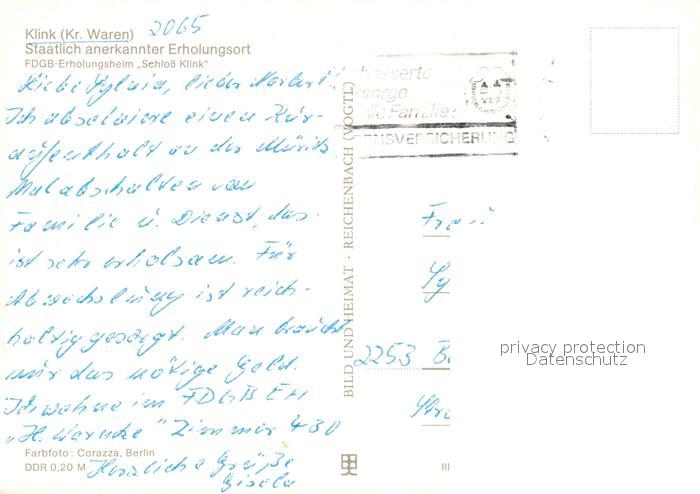 Klink (Kr. Waren) 2065
Staatlich anerkannter Erholungsort
FDGB-Erholungsheim „Schloß Klink"
Liebe Sylvia, lieber Norbert!
Ich absolviere einen Kur-
aufenthalt an der Müritz
Mal abschalten von
Familie u. Dienst, das
ist sehr erholsam. Für
Abwechslung ist reich-
haltig gesorgt. Man braucht
nur das nötige Geld.
Ich wohne im FDGB EH
„H. Warnke" Zimmer 430
Herzliche Grüße
Gisela
Farbfoto: Corazza, Berlin
DDR 0,20 M
BILD UND HEIMAT · REICHENBACH (VOGTL)
besserte
sorge
die Familie:
ENSVERSICHERUNG
Frau
Sy
2253 B
Str
III
privacy protection
Datenschutz